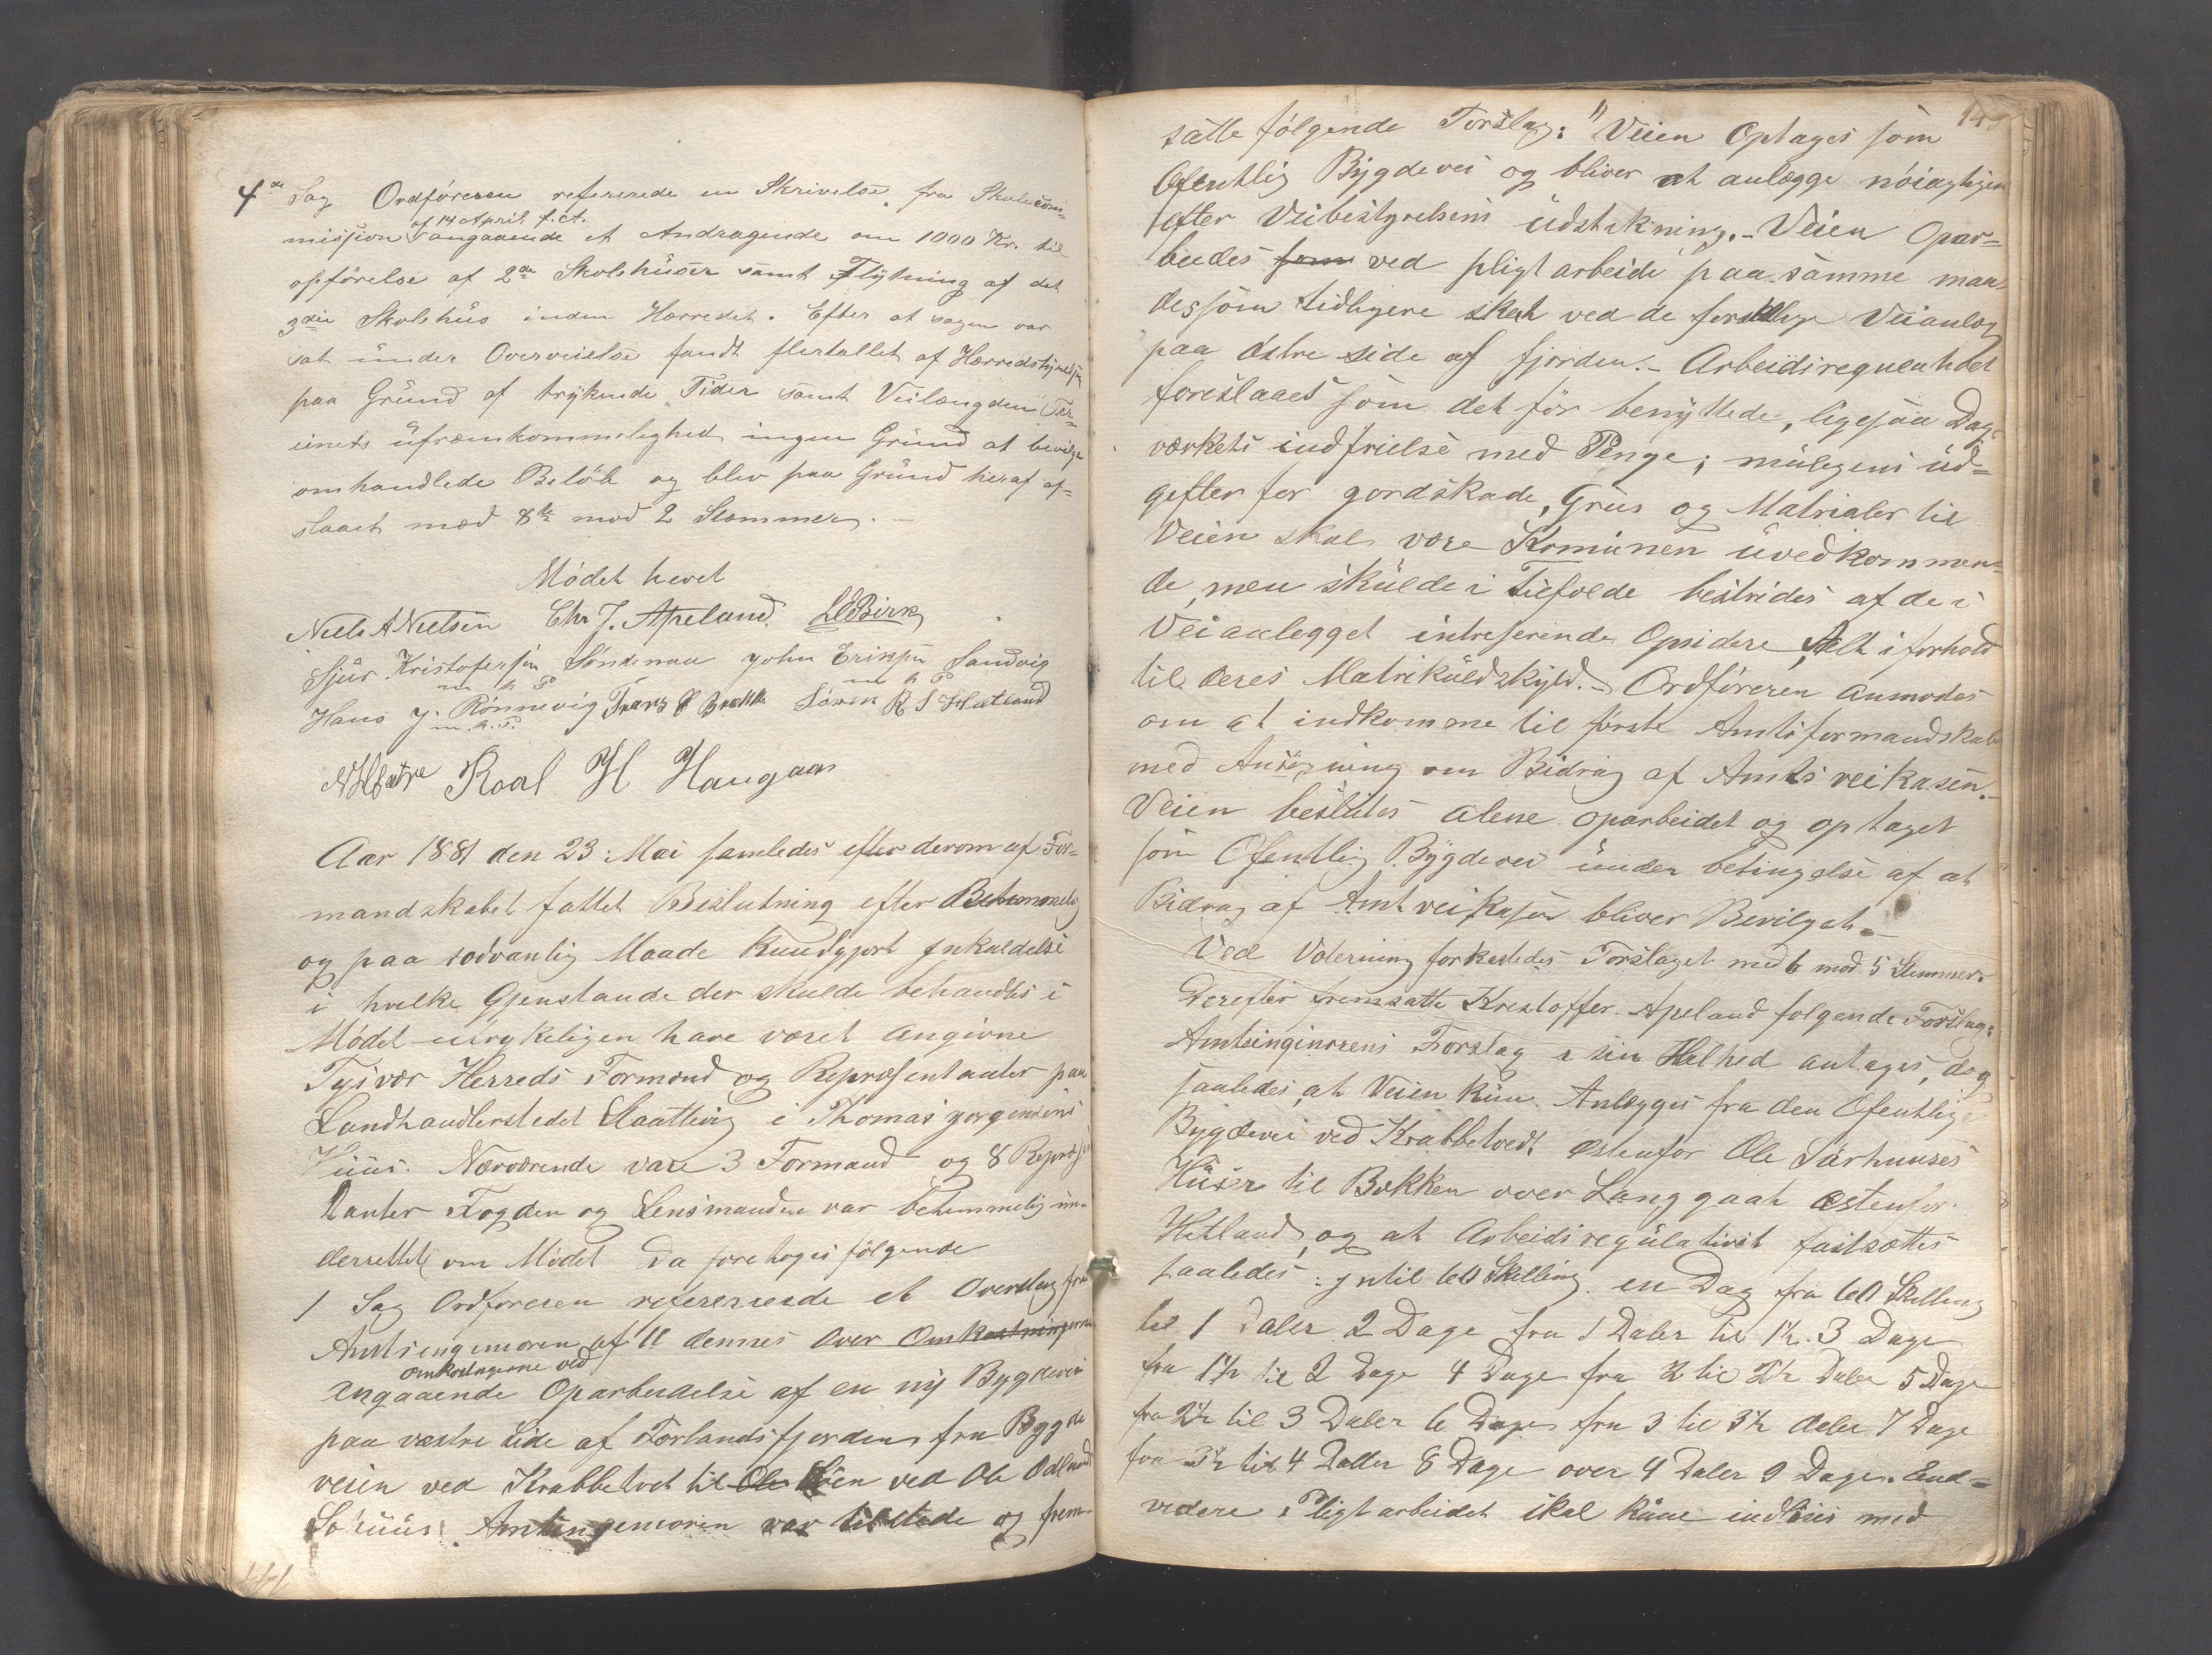 4de Sag Ordföreren refererede en Skrivelse fra Skolecom-
af 14 April f. ct.
mission angaaende et Andragende om 1000 Kr. til
opförelse af 2de Skolehüser samt Flÿtning af det
3die Skolehüs inden Herredet. Efter at sagen var
sat ünder Overveielse fandt flertallet af Herredstÿrelsen
paa Gründ af trÿkende Tider samt Veilængden Ter-
ænets üfremkommelighed ingen Gründ at bevilge
omhandlede Belöb og blev paa Gründ heraf af-
slaaet med 8te mod 2 Stemmer. —
Mödet hevet
Niels A Nielsen Chr J. Apeland. LE Birk
Sjür Kristofersen Söndenaa John Eriksen Sandvig
m. p. P m p P
Hans J. Rönnevig Søren R S Hetland
m. p. P.
Roal H Haugaas
Aar 1881 den 23 Mai samledes efter derom af For-
mandskabet fattet Beslutning efter Betimmelig
og paa sedvanlig Maade Kundgjort Inkaldelse
i hvilke Gjenstande der skulde behandles i
Mödet udtrykeligen have været angivne
Tysvær Herreds Formænd og Repræsentanter paa
Landhandlerstedet Slaattevig i Thomas Jorgensens
Hüüs. Nærværende vare 3 Formænd og 8 Repræsen
tanter Fogden og Lensmanden var betimmelig un-
derrettet om Mödet Da foretoges fölgende
1 Sag Ordforeren refererede et Overslag fra
Amtsingeniøren af 11 dennes over Omkostningerne
omkostngerne ved
angaaende Oparbeidelse af en nÿ Bygdevei
paa vestre Side af Førlandsfjorden fra Bygde
veien ved Krabbetvet til Ole Søen ved Ole Odland
Söhüüs. Amtsingeniøren var tilstede og frem-
satte følgende Forslag: "Veien Optages som
Ofentlig Bÿgdevei og bliver at anlægge nöiagtigen
efter Veibestyrelsens üdstikning. - Veien Opar-
beides som ved pligtarbeide paa samme maa-
de som tidligere skeet ved de forskellige Veianlæg
paa östre side af fjorden. - Arbeidsreguentivet
foreslaaes som det för benÿttede, ligesaa Dags
værkets indfrielse med Penge; müligens üd-
gefter for jordskade, Grüs og Matrialer til
Veien skal være Komünen üvedkommen-
de, men skülde i Tilfælde bestrides af de i
Veianlegget intreserende Opsidere, Alt i forhold
til deres Matrikülskÿld. - Ordföreren anmodes
om at indkomme til förste Amtsformandskab
med Ansögning om Bidrag af Amts veikasen. -
Veien beslütes alene oparbeidet og optaget
som Ofentlig Bÿgdevei ünder betingelse af at
Bidrag af Amtveikasen bliver Bevilget. -
Ved Votering forkastedes Forslaget med 6 mod 5 Stemmer.
Derefter fremsatte Kristoffer Apeland følgende Forslag:
Amtsinginørens Forslag i sin Helhed antages, dog
saaledes, at Veien kün Anlægges fra den Ofentlige
Bÿgdevei ved Krabbetvedt østenfor Ole Sørhuuses
Hüser til Bækken over Langgaat østenfor
Hetland, og at Arbeidsregülativet fastsættes
saaledes: Intil 60 Skilling en Dag fra 60 Skilling
til 1 Daler 2 Dage fra 1 Daler til 1½ 3 Dage
fra 1½ til 2 Dage 4 Dage fra 2 til 2½ Daler 5 Dage
fra 2½ til 3 Daler 6 Dage fra 3 til 3½ daler 7 Dage
fra 3½ til 4 Daller 8 Dage over 4 Daler 9 Dage. End-
videre Pligtarbeidet skal kune indløses med